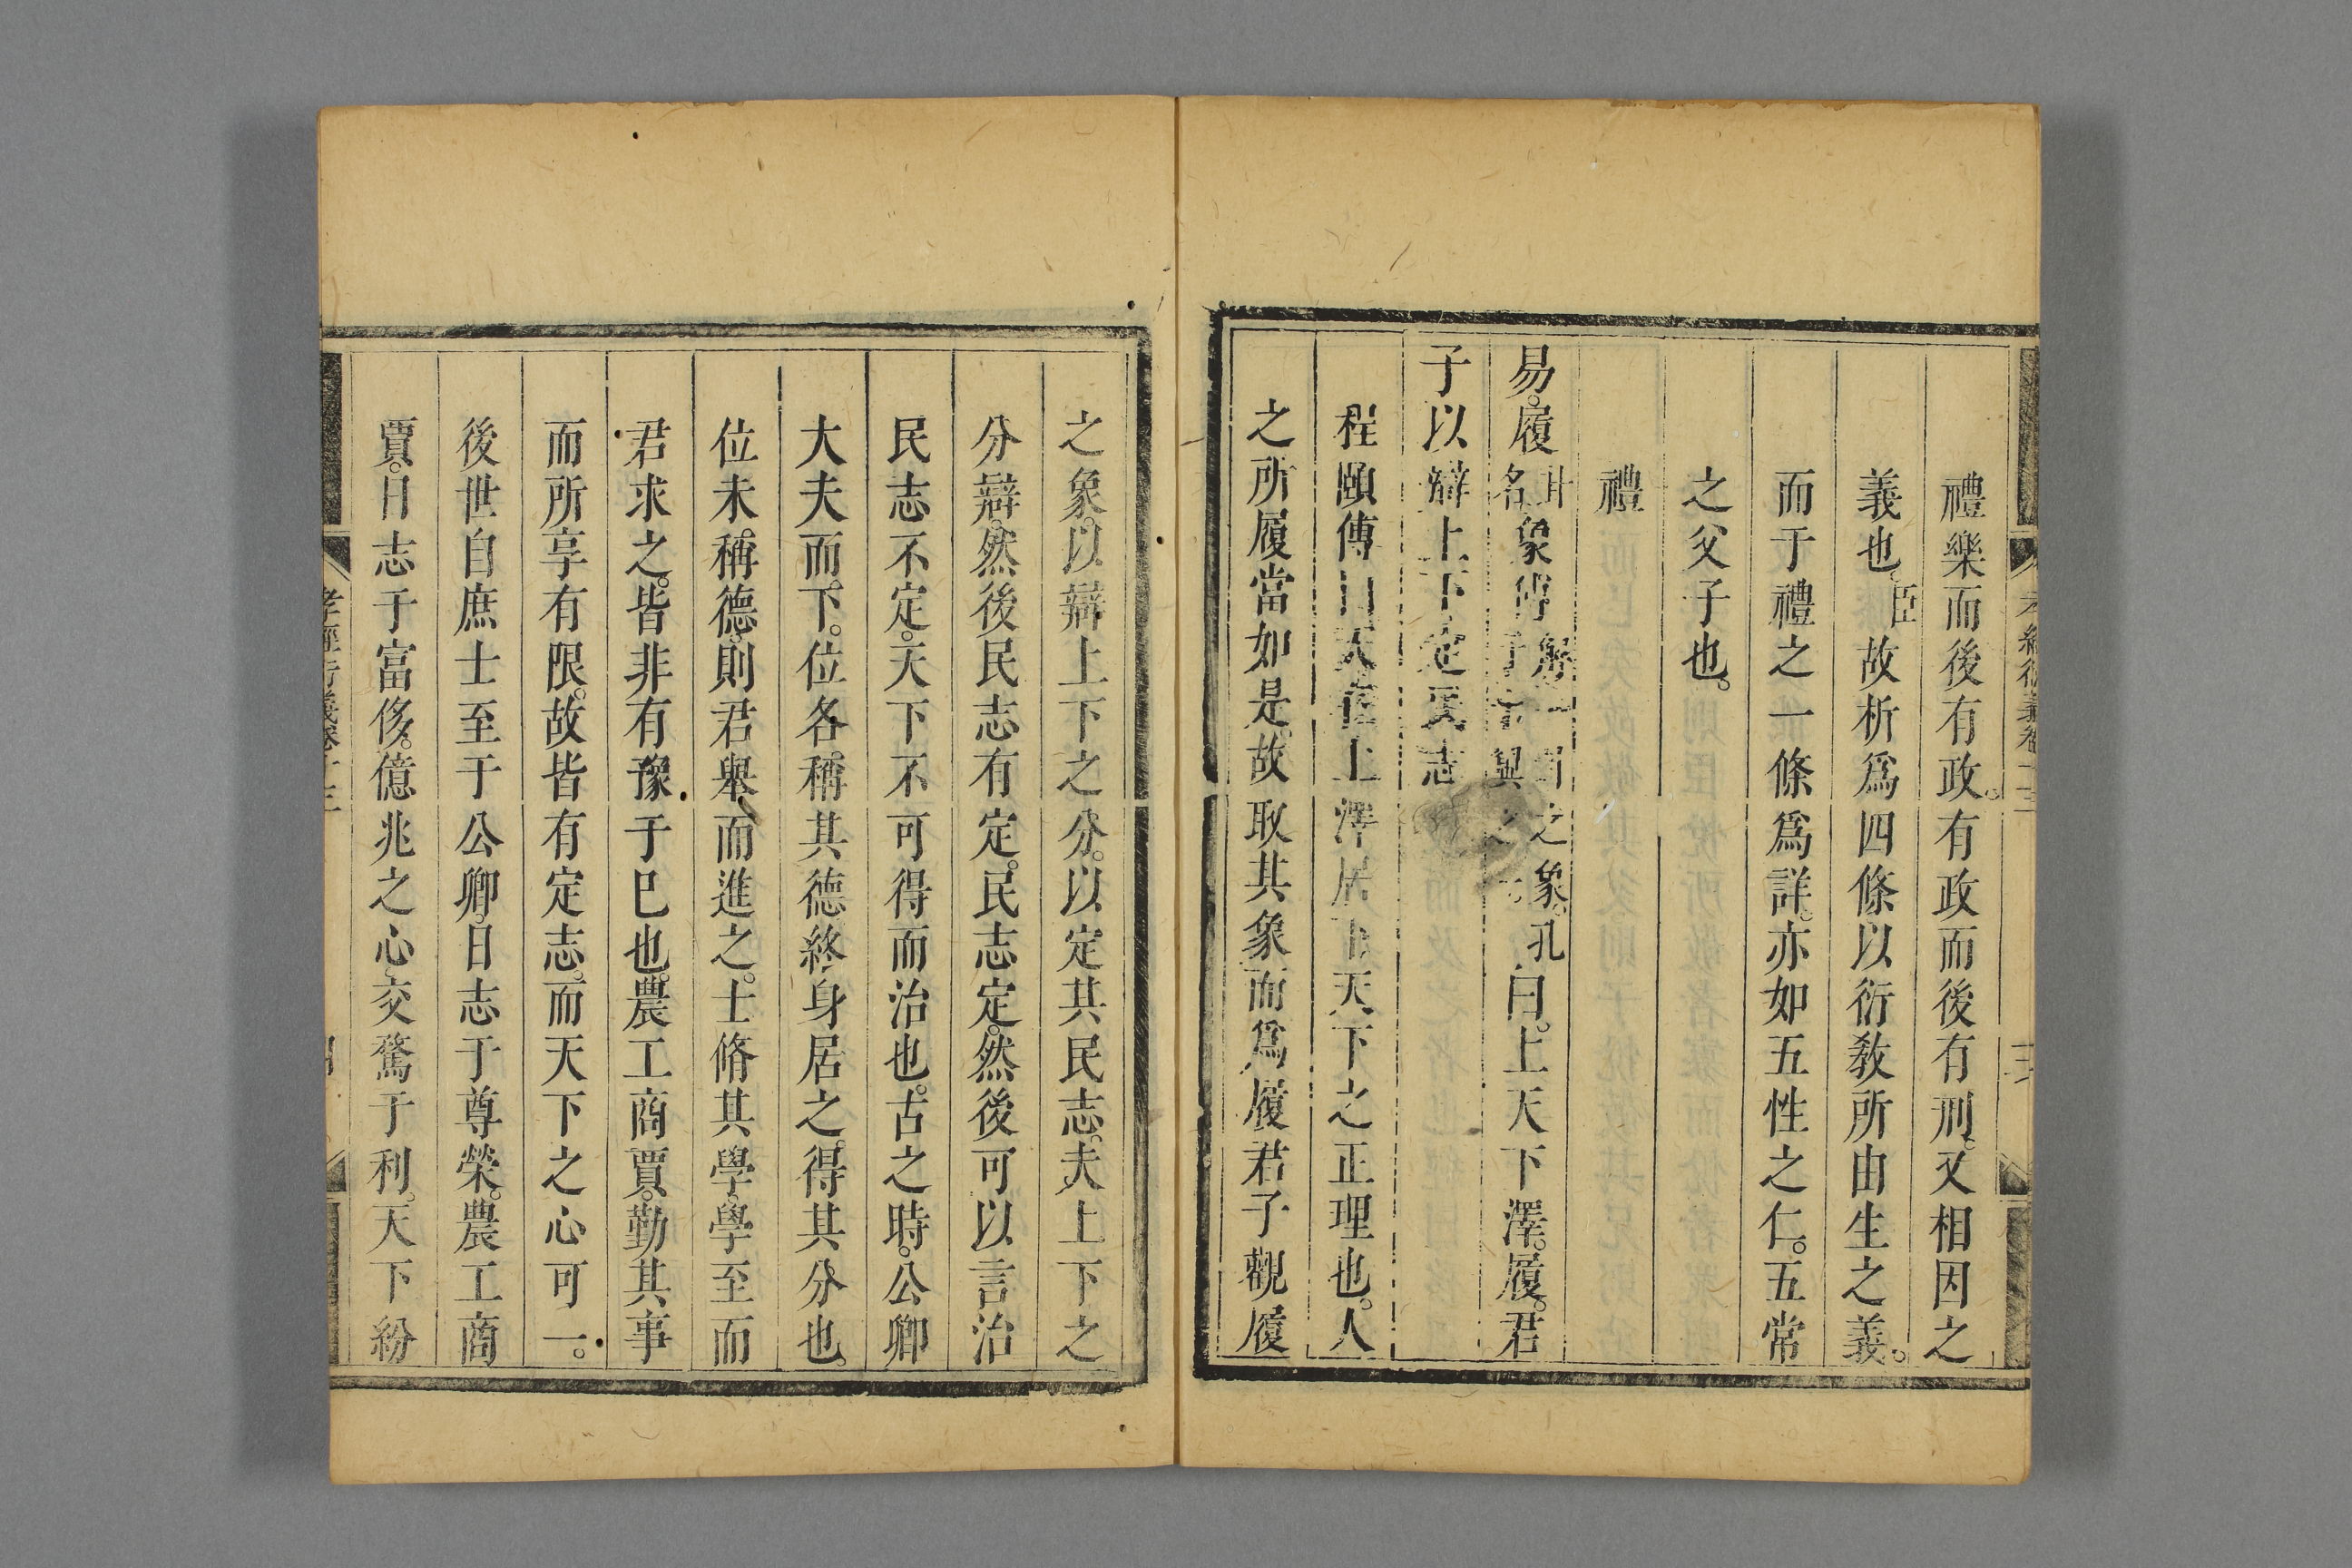 禮樂而後有政。有政而後有刑。又相因之
義也。臣故析爲四條以衍敎所由生之義。
而于禮之一條爲詳。亦如五性之仁。五常
之父子也。
禮
易。履卦名象傳解一卦之象。孔子曰。上天下澤。履。君
子以辯上下定民志
程頤傳曰天在上澤居下天下之正理也。人
之所履當如是。故取其象而爲履君子觀履
之象。以辯上下之分。以定其民志。夫上下之
分辯。然後民志有定。民志定。然後可以言治
民志不定。天下不可得而治也。古之時。公卿
大夫而下。位各稱其德終身居之。得其分也。
位未稱德。則君舉而進之。士脩其學。學至而
君求之。皆非有豫于已也。農工商賈。勤其事
而所享有限。故皆有定志。而天下之心可一。
後世自庶士至于公卿。日志于尊榮。農工商
賈。日志于富侈。億兆之心。交騖于利。天下紛
孝經衍義卷十三